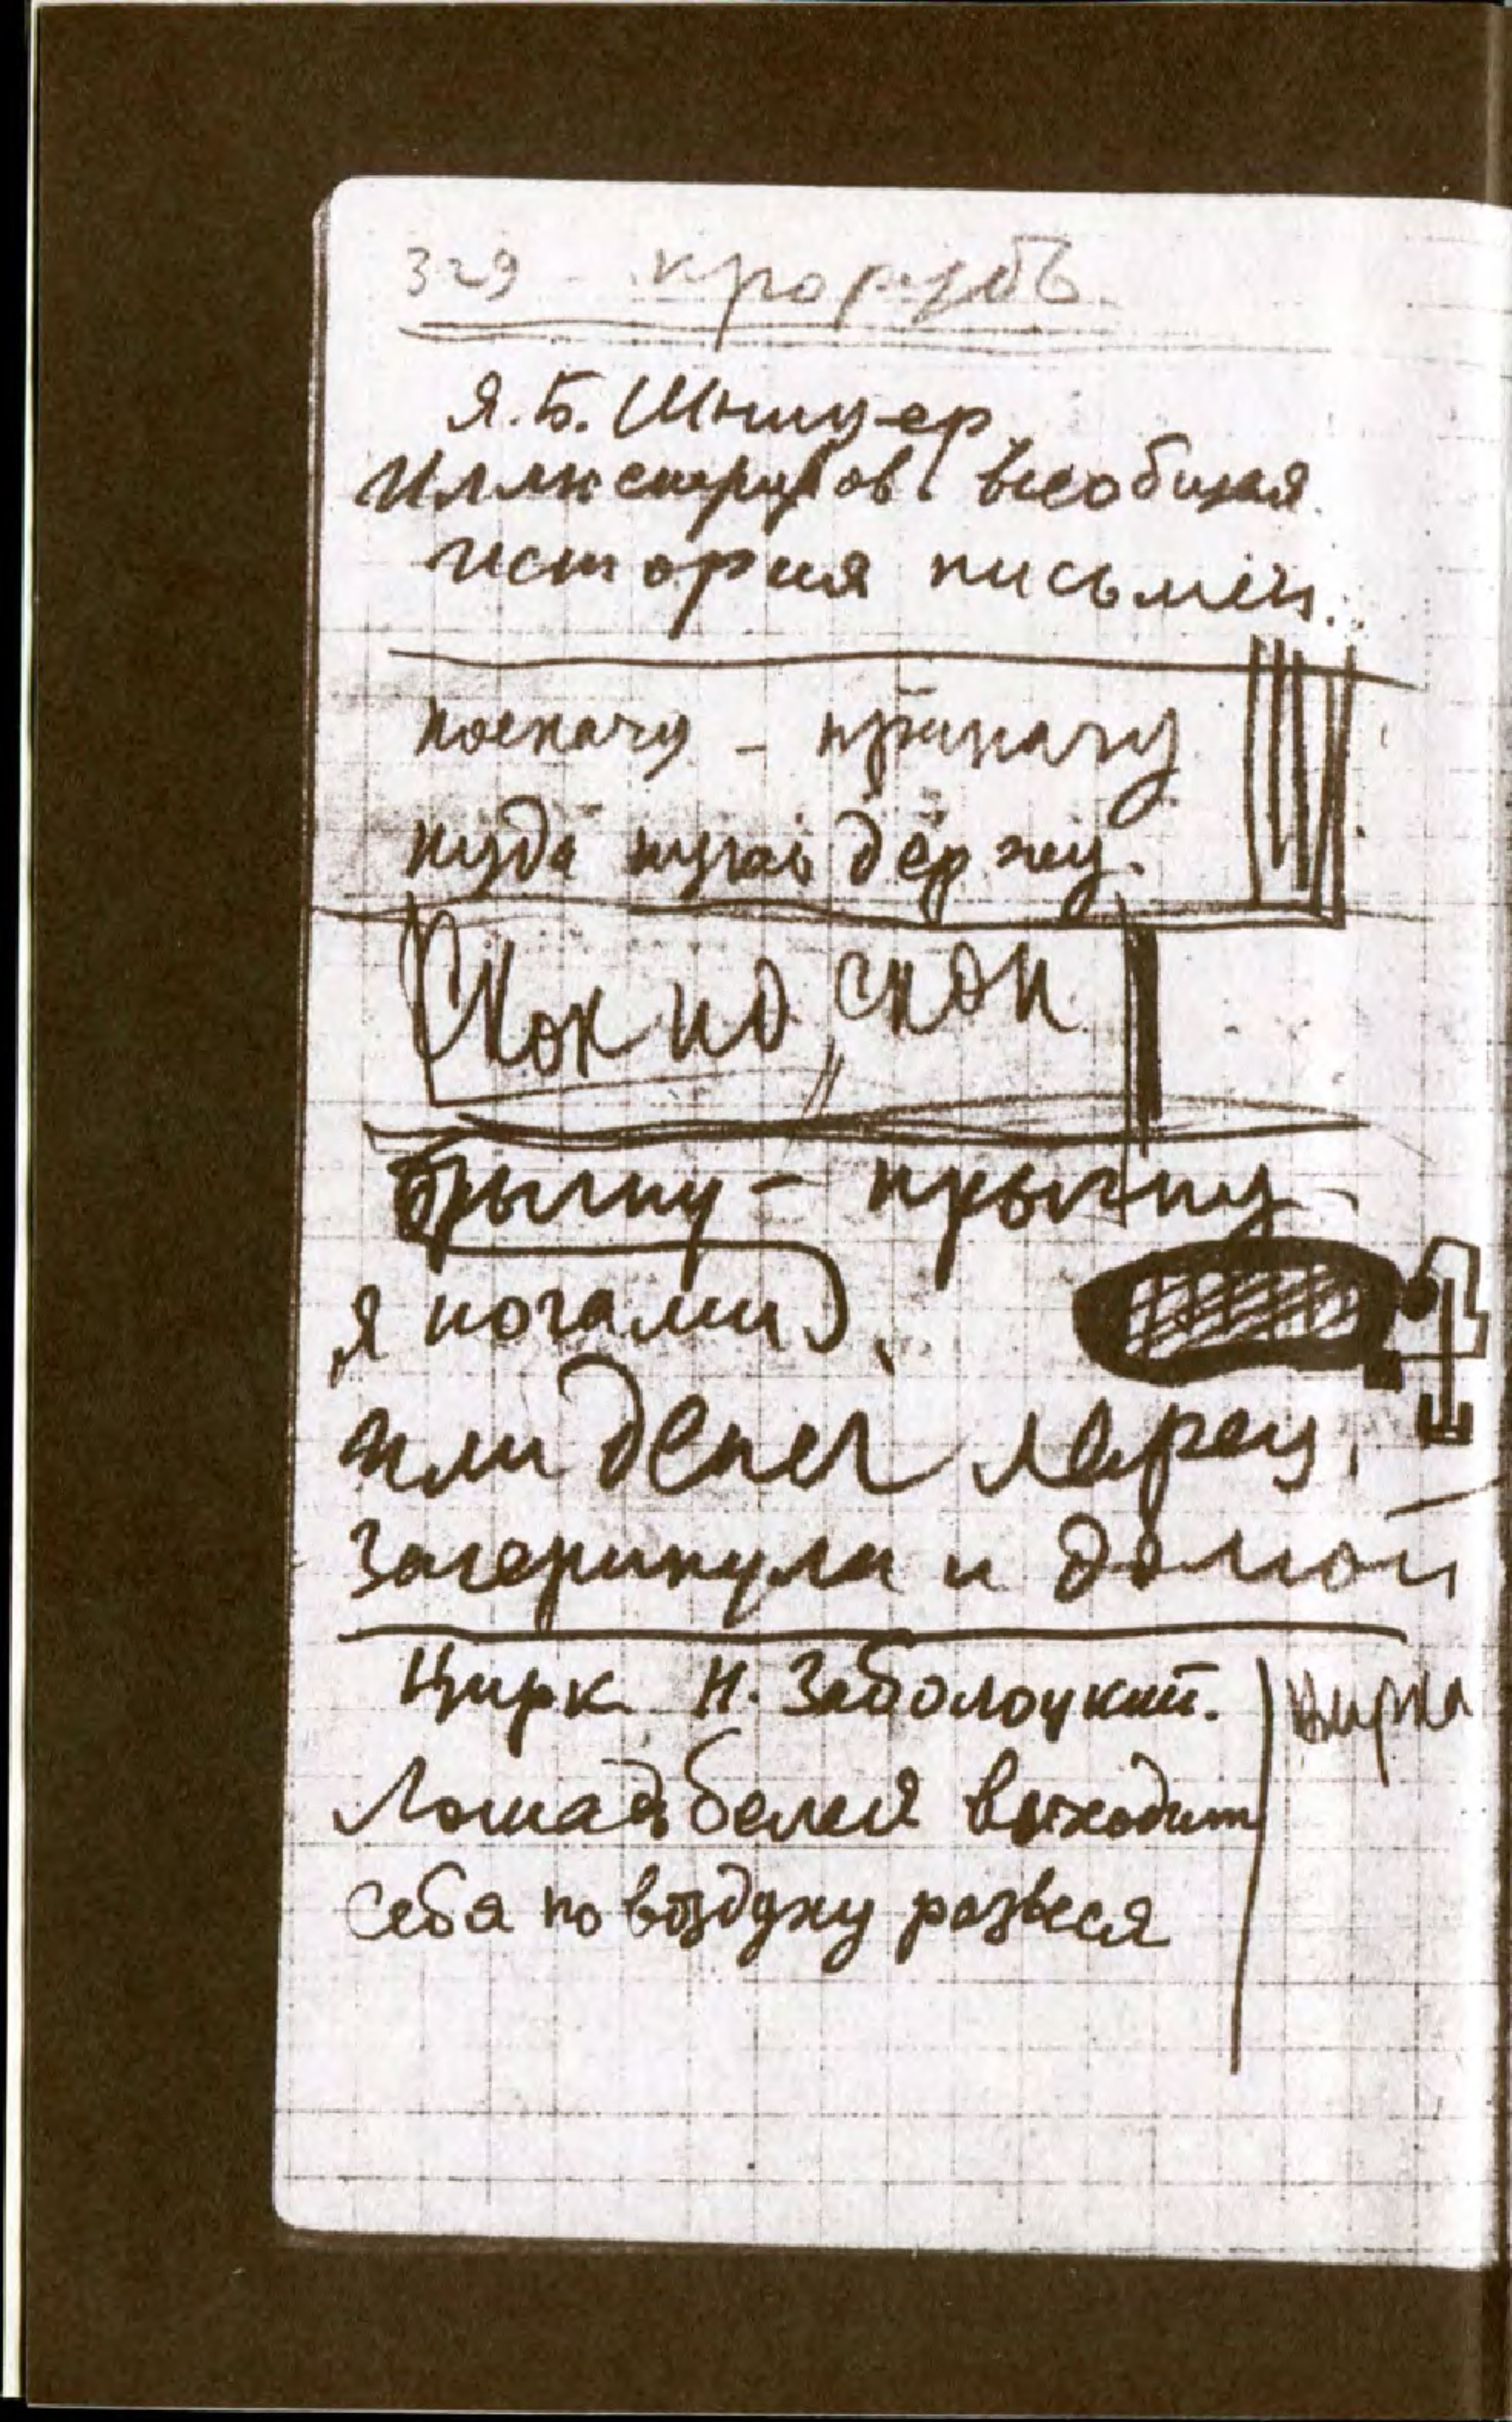 329 -
Я.Б. Шницер
Иллюстриров. всеобщая
история письмен..
поскачу - прискачу
куда кучи держу.
Скок по скок
брыкну - прыгну
я ногами
или денег ларец
зачерпнула и домой
Цирк Н. Заболоцкий.
цирка
Лошадь белая выходит
себя по воздуху развеся